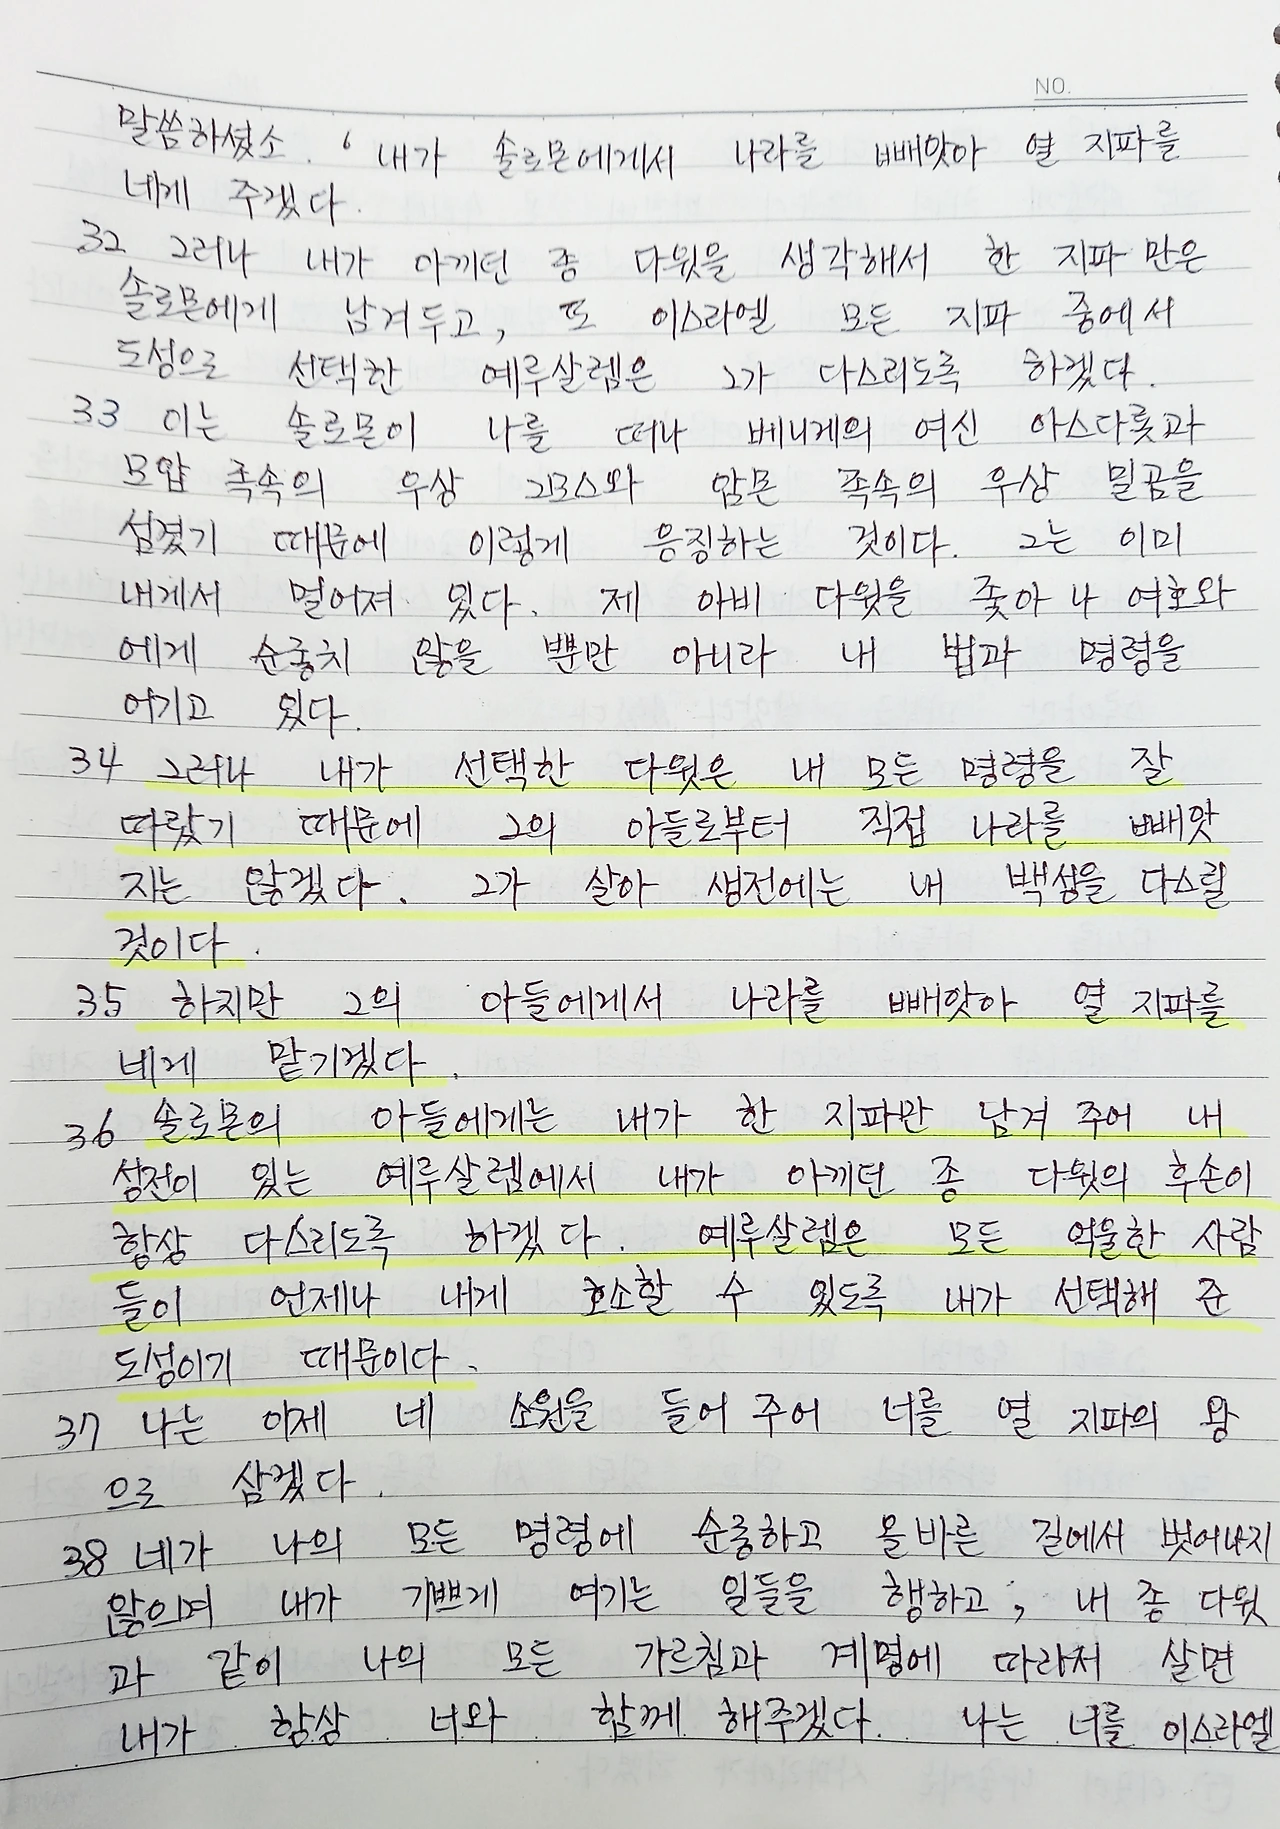 NO.
말씀하셨소. ' 내가 솔로몬에게서 나라를 빼앗아 열 지파를
네게 주겠다.
32 그러나 내가 아끼던 종 다윗을 생각해서 한 지파 만은
솔로몬에게 남겨두고, 또 이스라엘 모든 지파 중에서
도성으로 선택한 예루살렘은 그가 다스리도록 하겠다.
33 이는 솔로몬이 나를 떠나 베니게의 여신 아스다롯과
모압 족속의 우상 그모스와 암몬 족속의 우상 밀곰을
섬겼기 때문에 이렇게 응징하는 것이다. 그는 이미
내게서 멀어져 있다. 제 아비 다윗을 좇아 나 여호와
에게 순종치 않을 뿐만 아니라 내 법과 명령을
어기고 있다.
34 그러나 내가 선택한 다윗은 내 모든 명령을 잘
따랐기 때문에 그의 아들로부터 직접 나라를 빼앗
지는 않겠다. 그가 살아 생전에는 내 백성을 다스릴
것이다.
35 하지만 그의 아들에게서 나라를 빼앗아 열 지파를
네게 맡기겠다.
36 솔로몬의 아들에게는 내가 한 지파만 남겨 주어 내
성전이 있는 예루살렘에서 내가 아끼던 종 다윗의 후손이
항상 다스리도록 하겠다. 예루살렘은 모든 억울한 사람
들이 언제나 내게 호소할 수 있도록 내가 선택해 준
도성이기 때문이다.
37 나는 이제 네 소원을 들어 주어 너를 열 지파의 왕
으로 삼겠다.
38 네가 나의 모든 명령에 순종하고 올바른 길에서 벗어나지
않으며 내가 기쁘게 여기는 일들을 행하고, 내 종 다윗
과 같이 나의 모든 가르침과 계명에 따라서 살면
내가 항상 너와 함께 해주겠다. 나는 너를 이스라엘